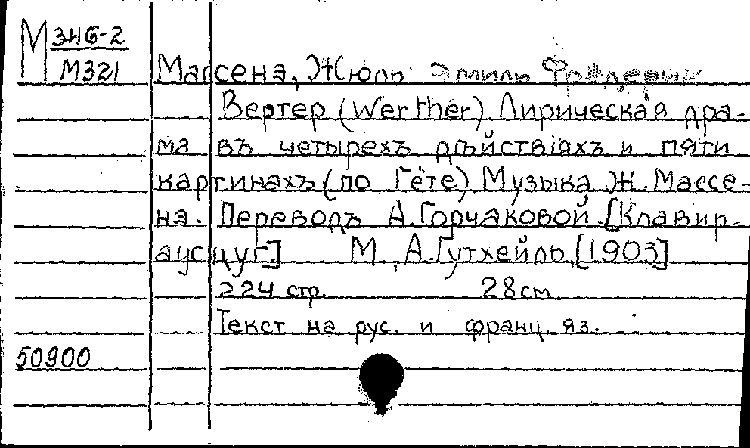 М 3Н6-2
М321
Массена, Жюль Эмиль Фредерик
Вертер (Werther). Лирическая дра-
ма въ четырехъ дѣйствіяхъ и пяти
картинахъ (по Гёте) Музыка Ж. Массе-
на. Переводъ А. Горчаковой. [Клавир-
аусцуг]   М., А. Гутхейль, [1903]
224 стр.   28см
Текст на рус. и франц. яз.
50900